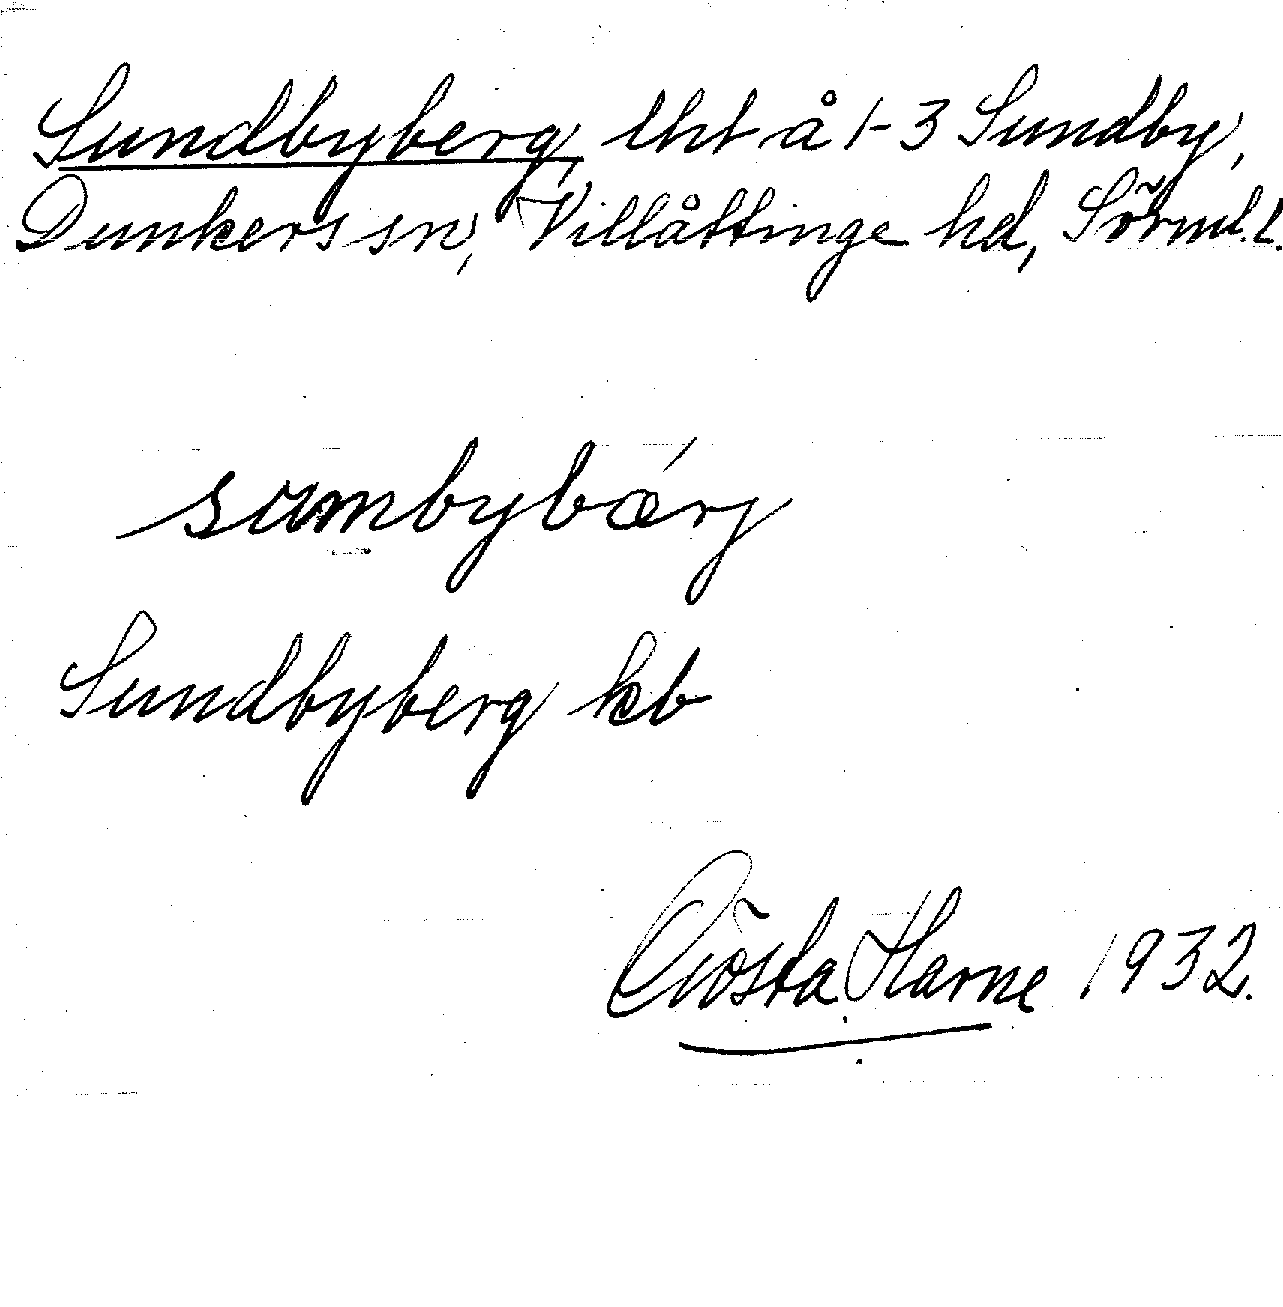 Sundbyberg, lht å 1-3 Sundby,
Dunkers sn, Villåttinge hd, Sörml.l.
sumbybǽrj
Sundbyberg kb
Gösta Harne 1932.